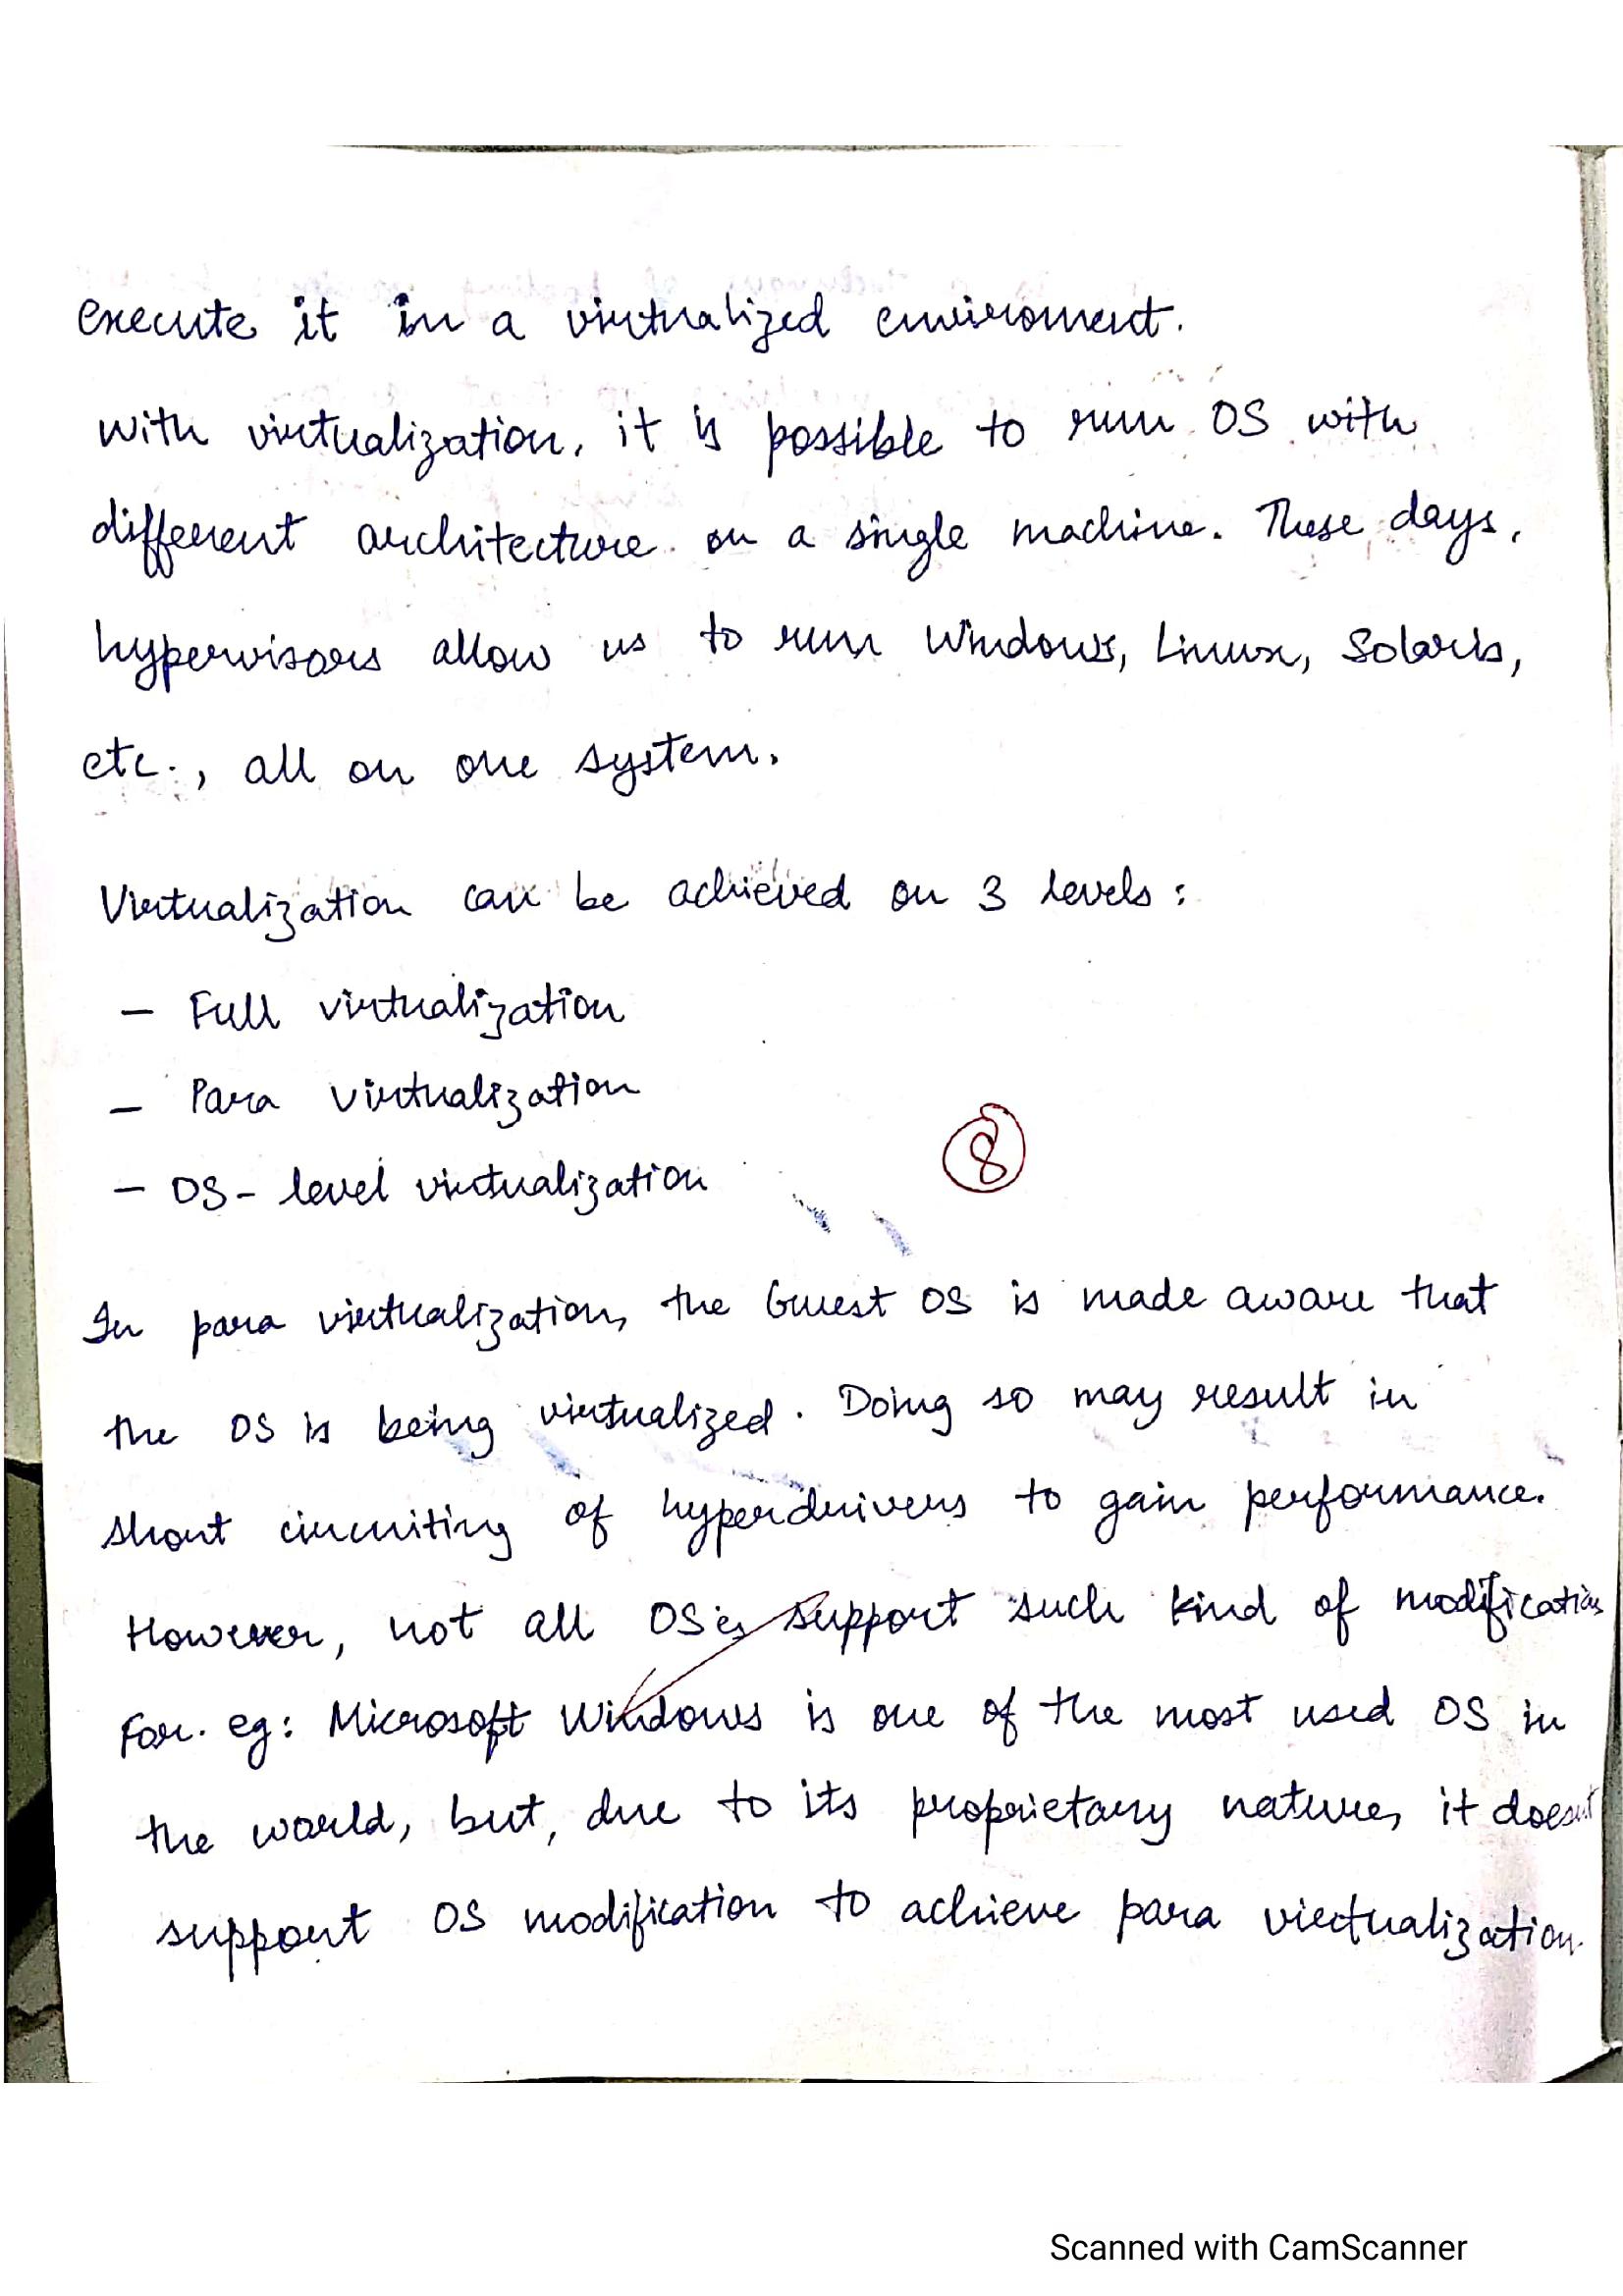 execute it in a virtualized enviroment.
With virtualization, it is possible to run OS with
different architecture on a single machine. These days,
hypervisors allow us to run Windows, Linux, Solaris,
etc., all on one system.
Virtualization can be achieved on 3 levels :
- Full virtualization
- Para virtualization
8
- OS- level virtualization
In para virtualization, the Guest OS is made aware that
the OS is being virtualized. Doing so may result in
short circuiting of hyperdrivers to gain performance.
However, not all OS'es support such kind of modification
For. eg: Microsoft Windows is one of the most used OS in
the world, but, due to its proprietary nature, it doesn't
support OS modification to achieve para virtualization.
Scanned with CamScanner